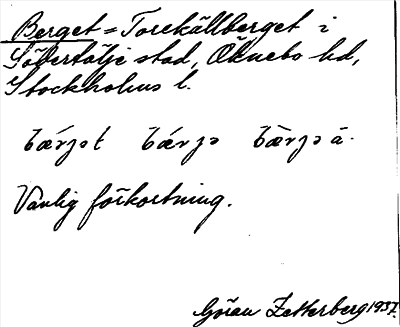 Berget = Torekällberget i
Södertälje stad, Öknebo hd,
Stockholms l.
bärjət bärjə bärjəä.
Vanlig förkortning.
Göran Zetterberg 1937.